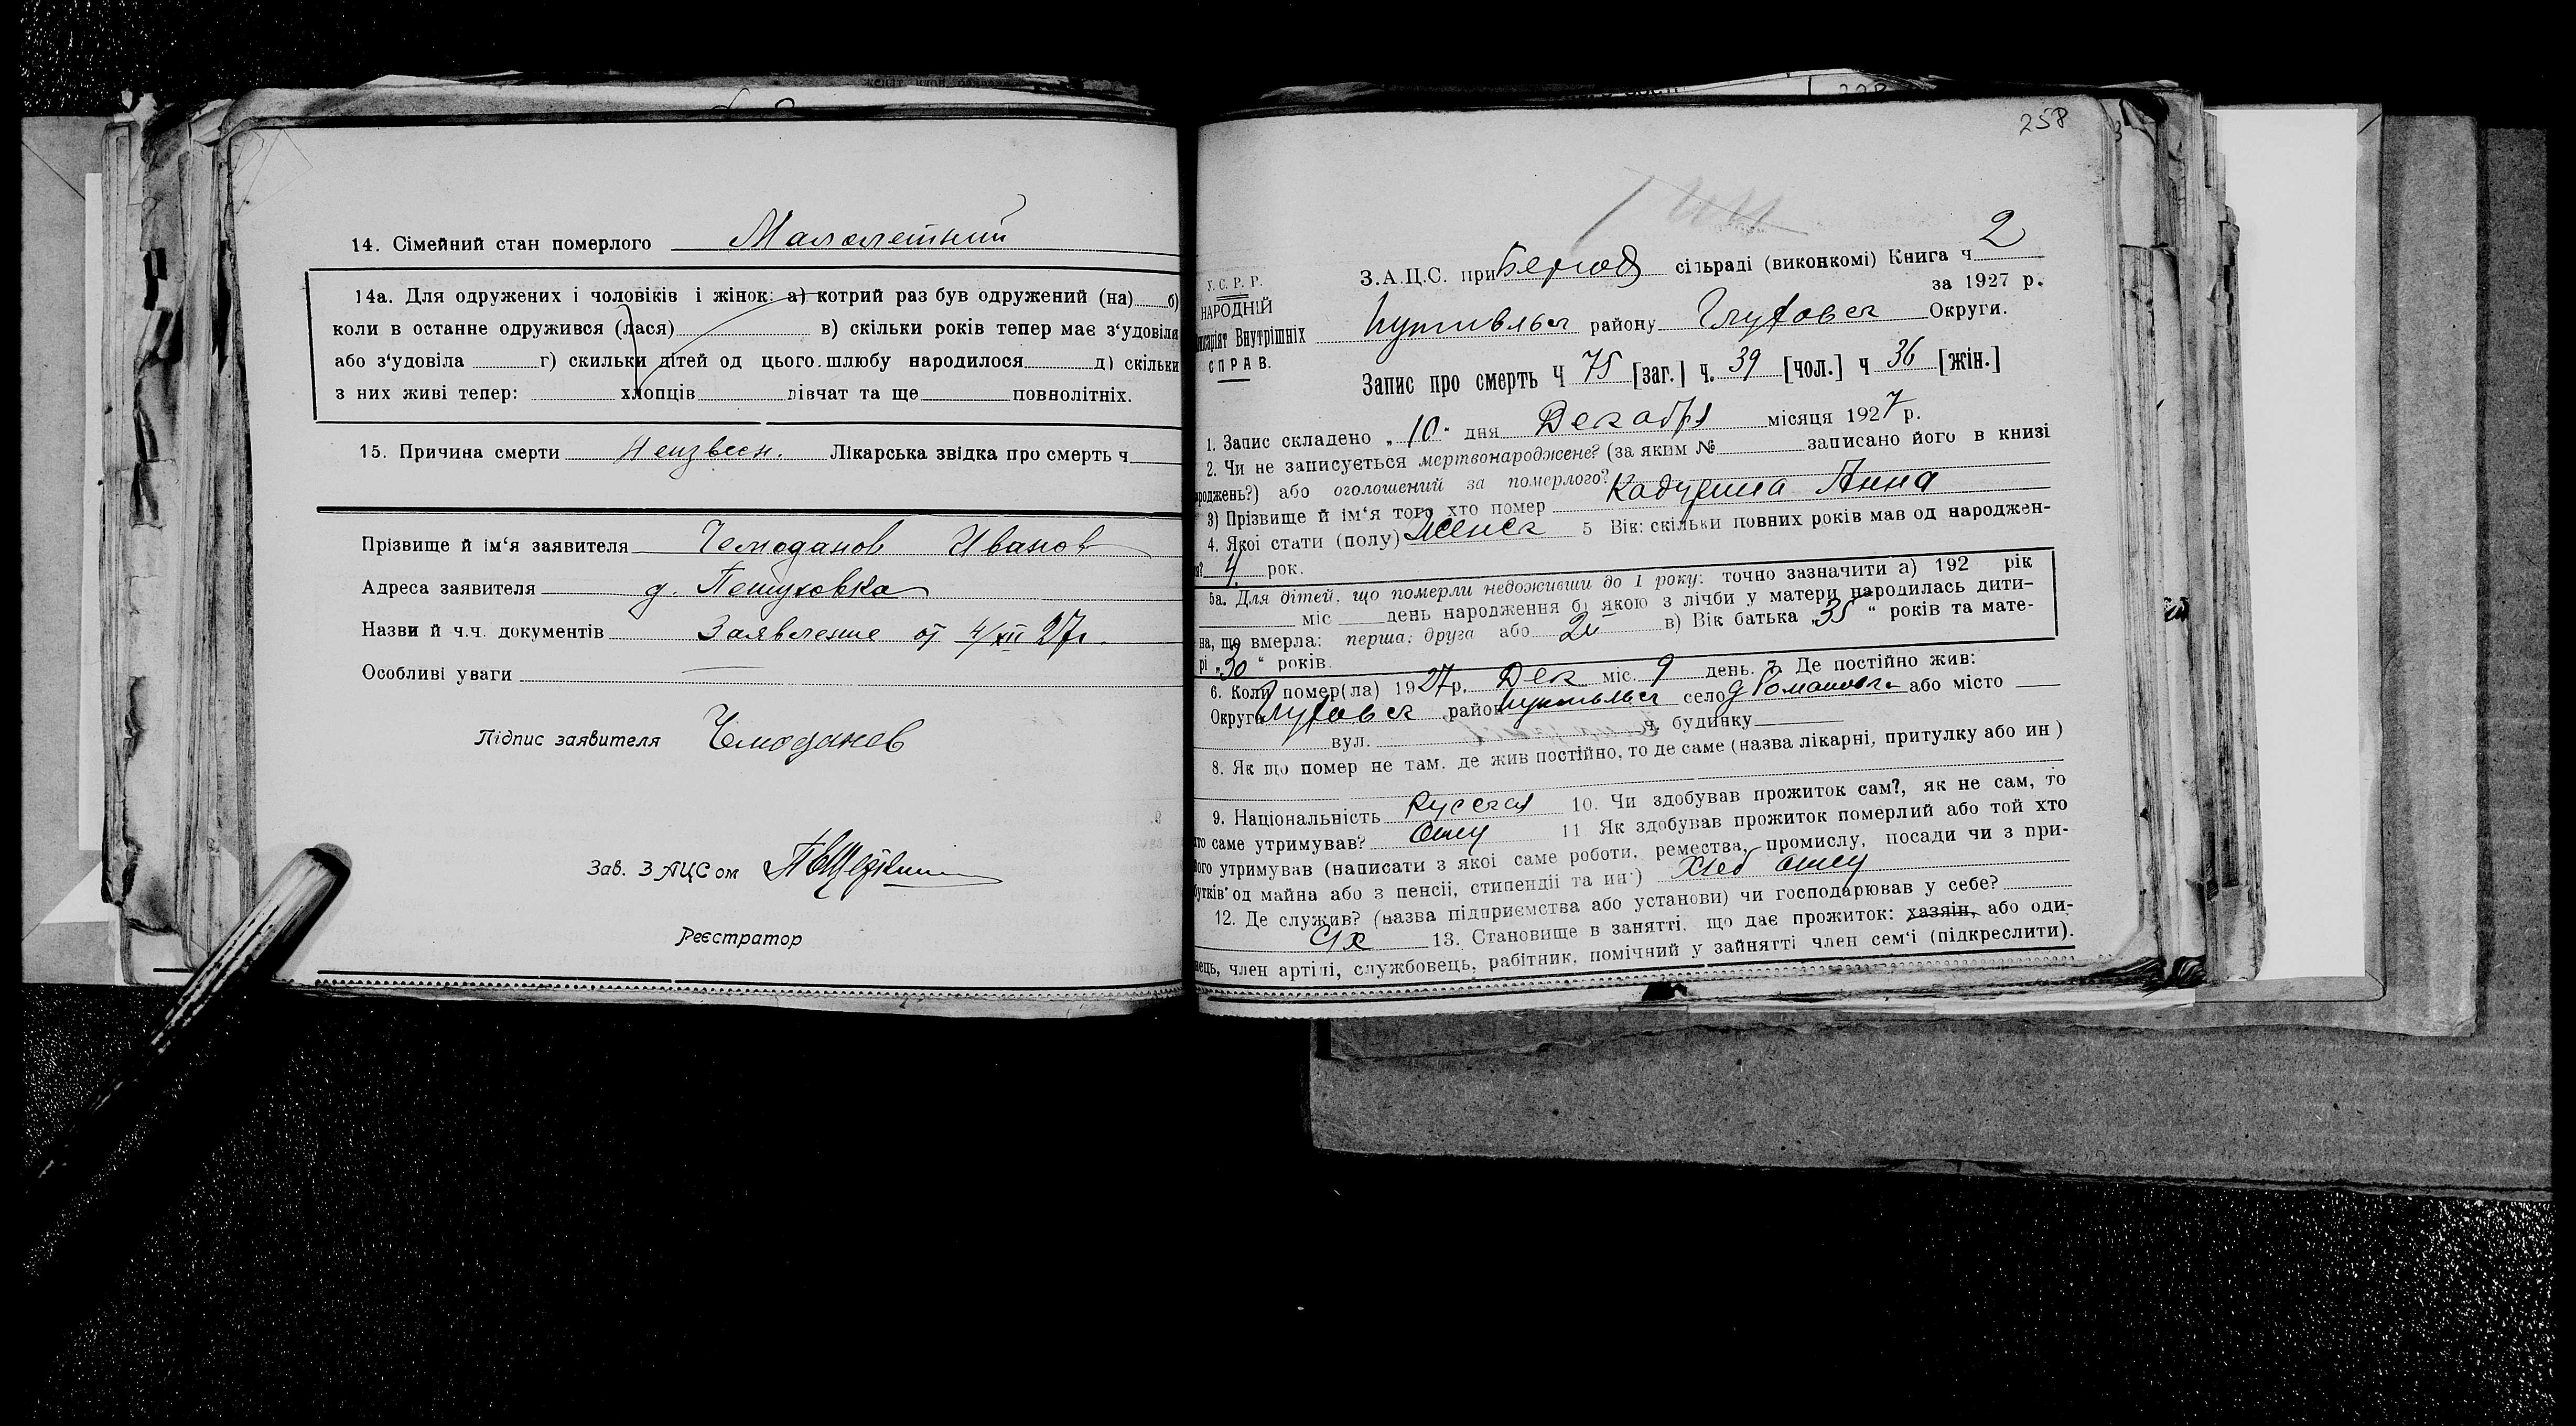 14. Сімейний стан померлого Малолетний
14а. Для одружених і чоловіків і жінок: а) котрий раз був одружений (на) б)
коли в останне одружився (лася) в) скільки років тепер має з‘удовіля
або з‘удовіла г) скильки дітей од цього шлюбу народилося д) скільки
з них живі тепер: хлопців дівчат та ще повнолітніх.
15. Причина смерти Неизвесн. Лікарська звідка про смерть ч
Прізвище й ім‘я заявителя Чемоданов Иванов
Адреса заявителя д. Петуховка
Назви й ч.ч. документів Заявление от 4/XII 27г.
Особливі уваги
Підпис заявителя Чемоданов
Зав. ЗАЦСом
Реєстратор
258
У.С.Р.Р.
НАРОДНІЙ
місаріят Внутрішніх
СПРАВ.
З.А.Ц.С. при сільраді (виконкомі) Книга ч 2
за 1927 р.
Путивльск району Глуховск Округи.
Запис про смерть Ч 75 [заг.] ч. 39 [чол.] ч 36 [жін.]
1. Запис складено „10“ дня Декабря місяця 1927 р.
2. Чи не записується мертвонароджене? (за яким № записано його в книзі
ароджень?) або оголошений за померлого?
3) Прізвище й ім‘я того хто помер Кадурина Анна
4. Якої стати (полу) Женск 5 Вік: скільки повних років мав од народжен-
ня? 4 рок.
5а. Для дітей, що померли недоживши до 1 року: точно зазначити а) 192 рік
міс день народження б) якою з лічби у матери народилась дити-
на, що вмерла: перша, друга або 2й в) Вік батька „35“ років та мате-
рі „30“ років.
6. Коли помер(ла) 1927 р. Дек міс. 9 день. 7. Де постійно жив:
Округа Глуховск район Путивльск село д Романовка або місто
вул. ч. будинку
8. Як що помер не там, де жив постійно, то де саме (назва лікарні, притулку або ин )
9. Національність Русская 10. Чи здобував прожиток сам?, як не сам, то
хто саме утримував? Отец 11 Як здобував прожиток померлий або той хто
його утримував (написати з якої саме роботи, ремества, промислу, посади чи з при-
бутків од майна або з пенсії, стипендії та ин·) Хлеб отец
12. Де служив? (назва підприємства або установи) чи господарював у себе?
С/х 13. Становище в занятті, що дає прожиток: хазяін, або оди-
нець, член артілі, службовець, рабітник, помічний у зайнятті член сем‘і (підкреслити).